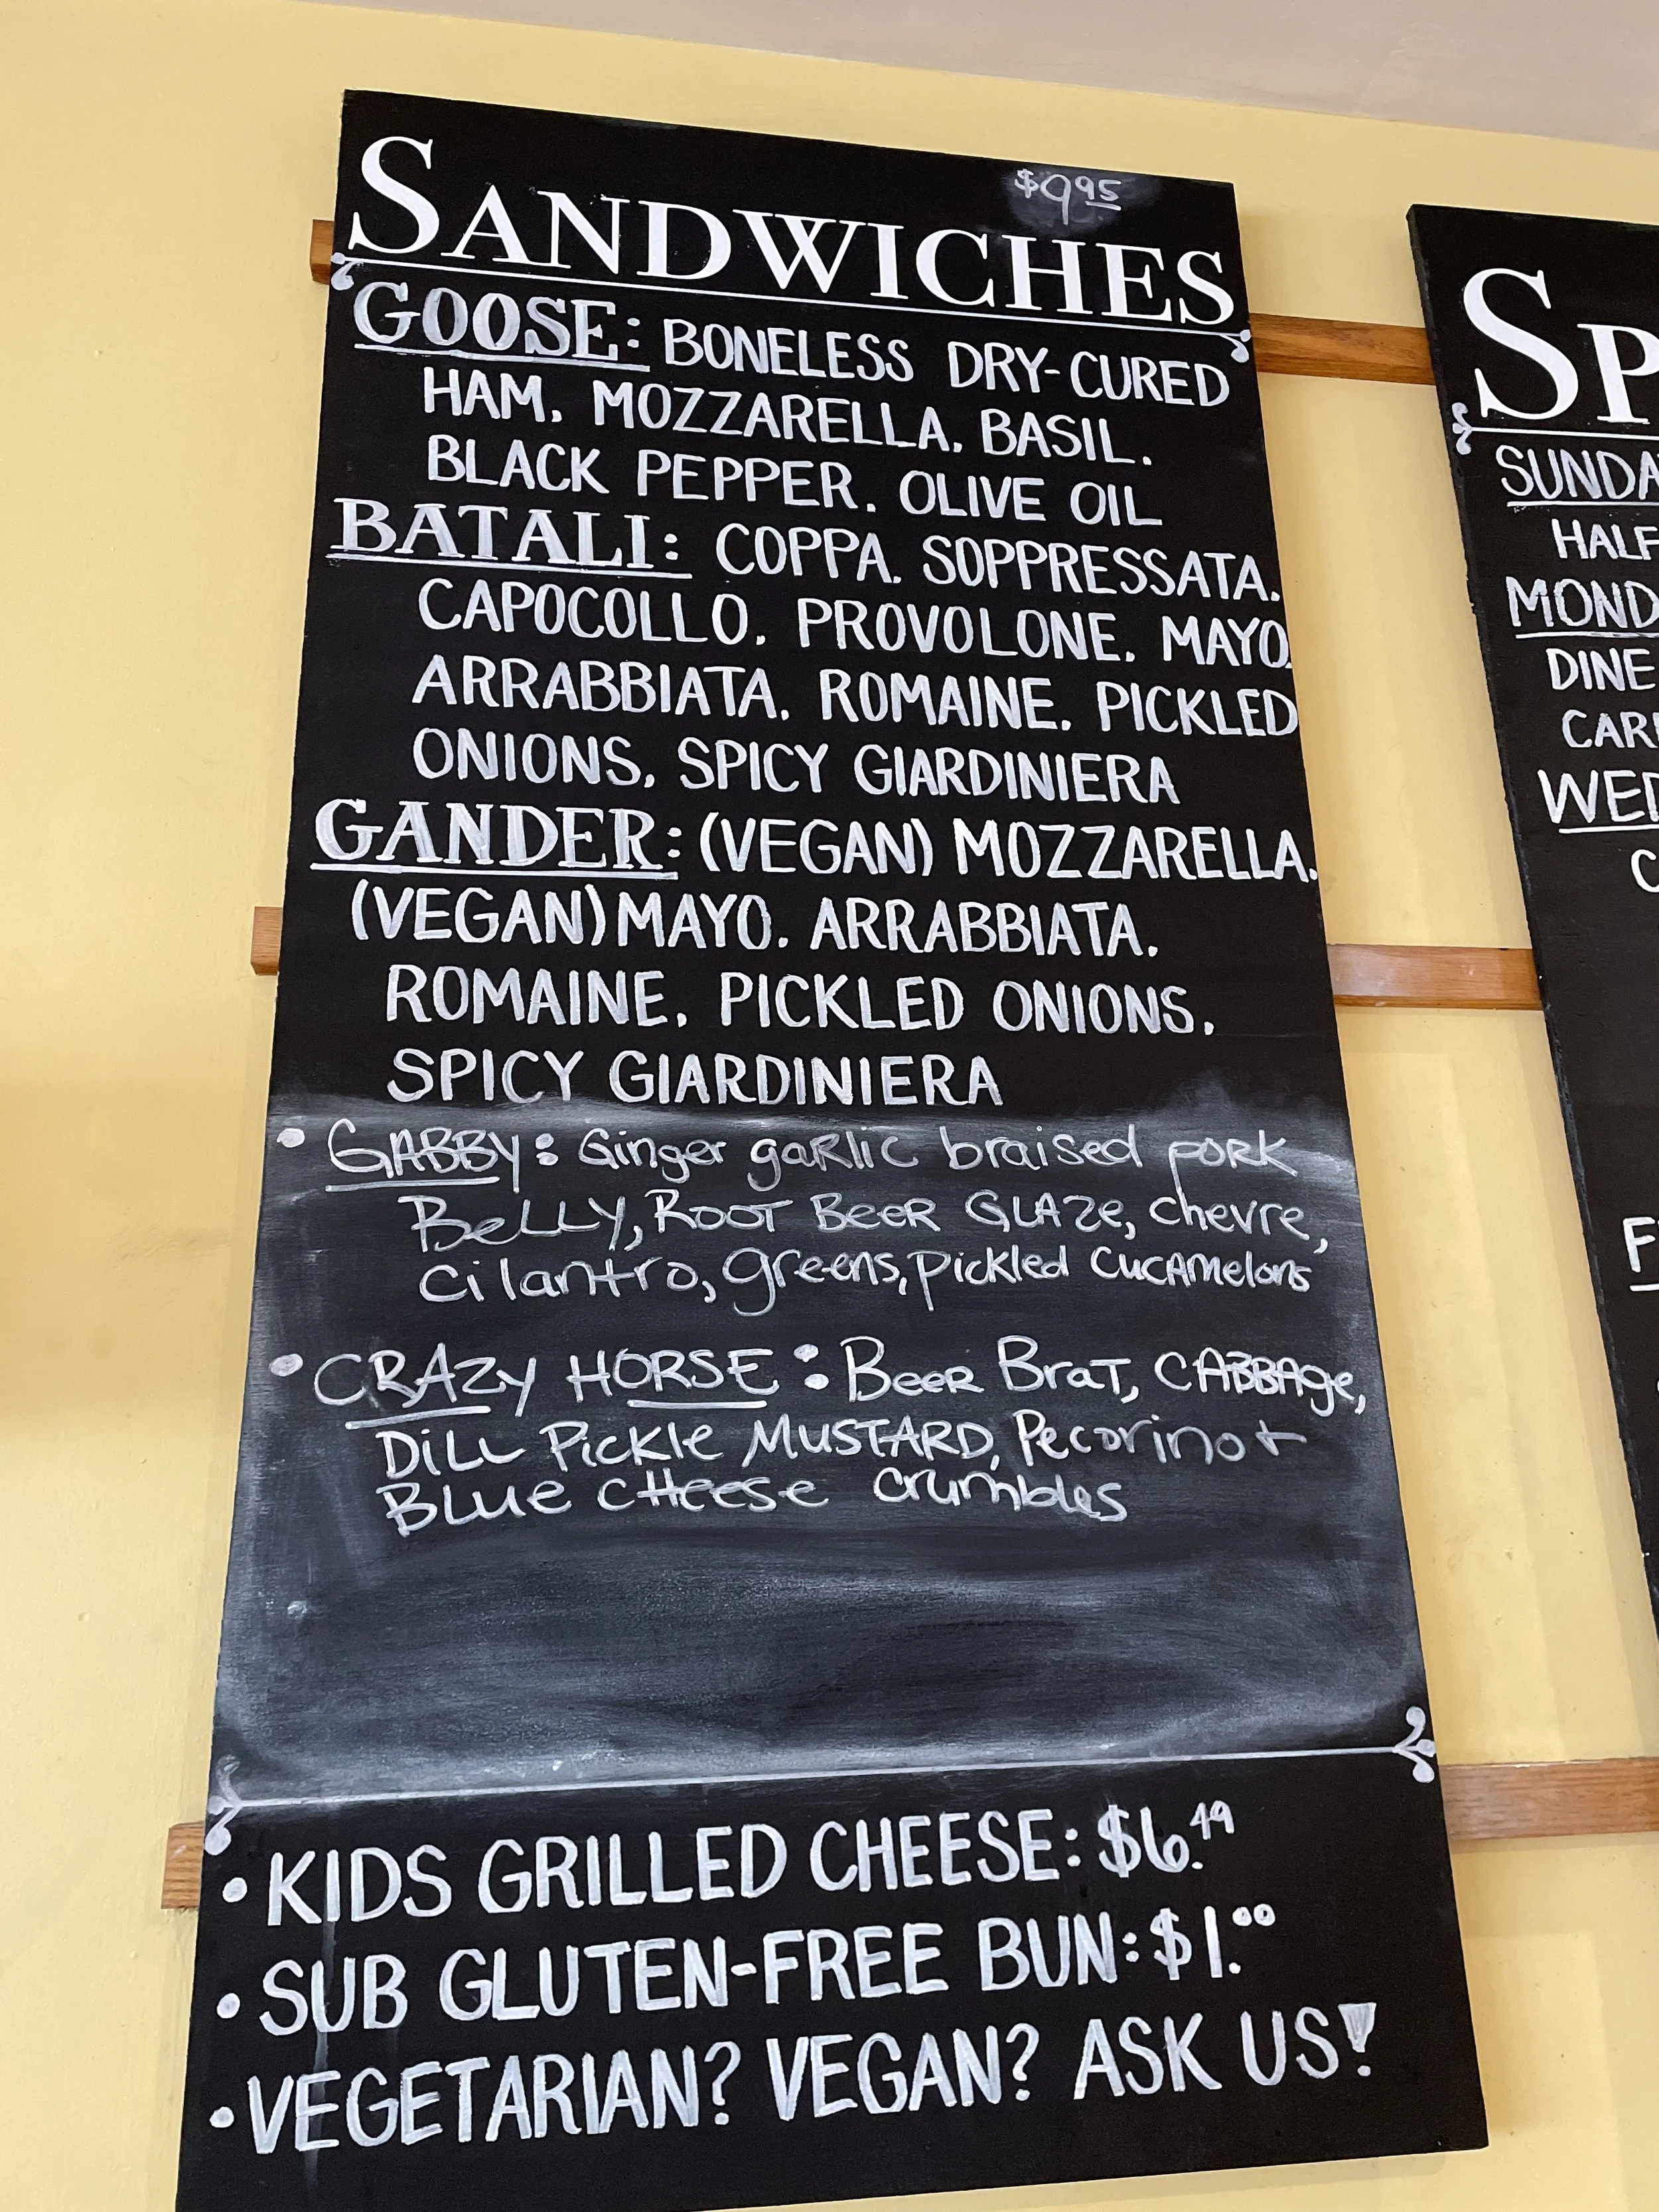 $9.95
SANDWICHES
GOOSE: BONELESS DRY-CURED
HAM, MOZZARELLA, BASIL,
BLACK PEPPER, OLIVE OIL
BATALI: COPPA, SOPPRESSATA,
CAPOCOLLO, PROVOLONE, MAYO,
ARRABBIATA, ROMAINE, PICKLED
ONIONS, SPICY GIARDINIERA
GANDER: (VEGAN) MOZZARELLA,
(VEGAN) MAYO, ARRABBIATA,
ROMAINE, PICKLED ONIONS,
SPICY GIARDINIERA
• GABBY: Ginger garlic braised pork
Belly, Root Beer Glaze, chevre,
cilantro, greens, pickled cucamelons
• CRAZY HORSE: Beer Brat, CABBAge,
Dill Pickle MUSTARD, Pecorino +
Blue cheese crumbles
• KIDS GRILLED CHEESE: $6.49
• SUB GLUTEN-FREE BUN: $1.00
• VEGETARIAN? VEGAN? ASK US!
SP
SUNDA
HALF
MOND
DINE
CAR
WED
C
F